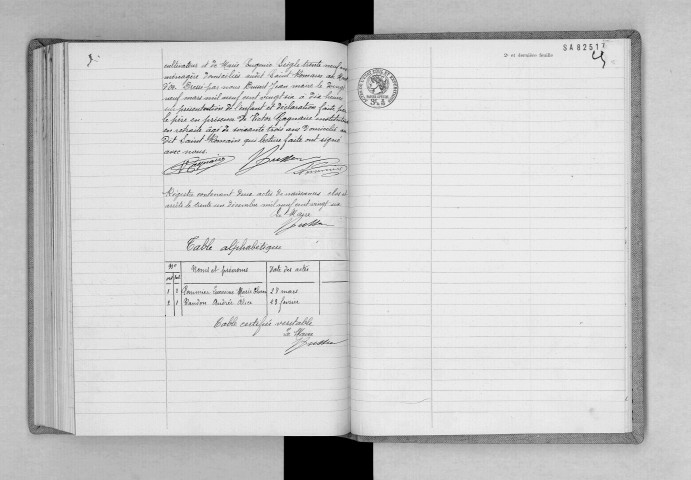 cultivateur et de Marie Eugenie trente neuf
ménagère domiciliés audit Saint Romain au Mont
d'or. Dressé par nous Jean maire le vingt
neuf mars mil neuf cent vingt six à dix heures
sur présentation de l'enfant et déclaration faite par
le père en présence de Victor Gagnaire instituteur
en retraite âgé de soixante trois ans domicilié au
dit Saint Romain qui lecture faite ont signé
avec nous.
Registre contenant deux actes de naissances clos et
arrêté le trente un décembre mil neuf cent vingt six
Le Maire
Table alphabétique
Nos
Noms et prénoms Date des actes
1 2 Marie 29 mars
2 1 Andrée Alice 13 février
Table certifiée véritable
Le Maire
SA 82517
2e et dernière feuille